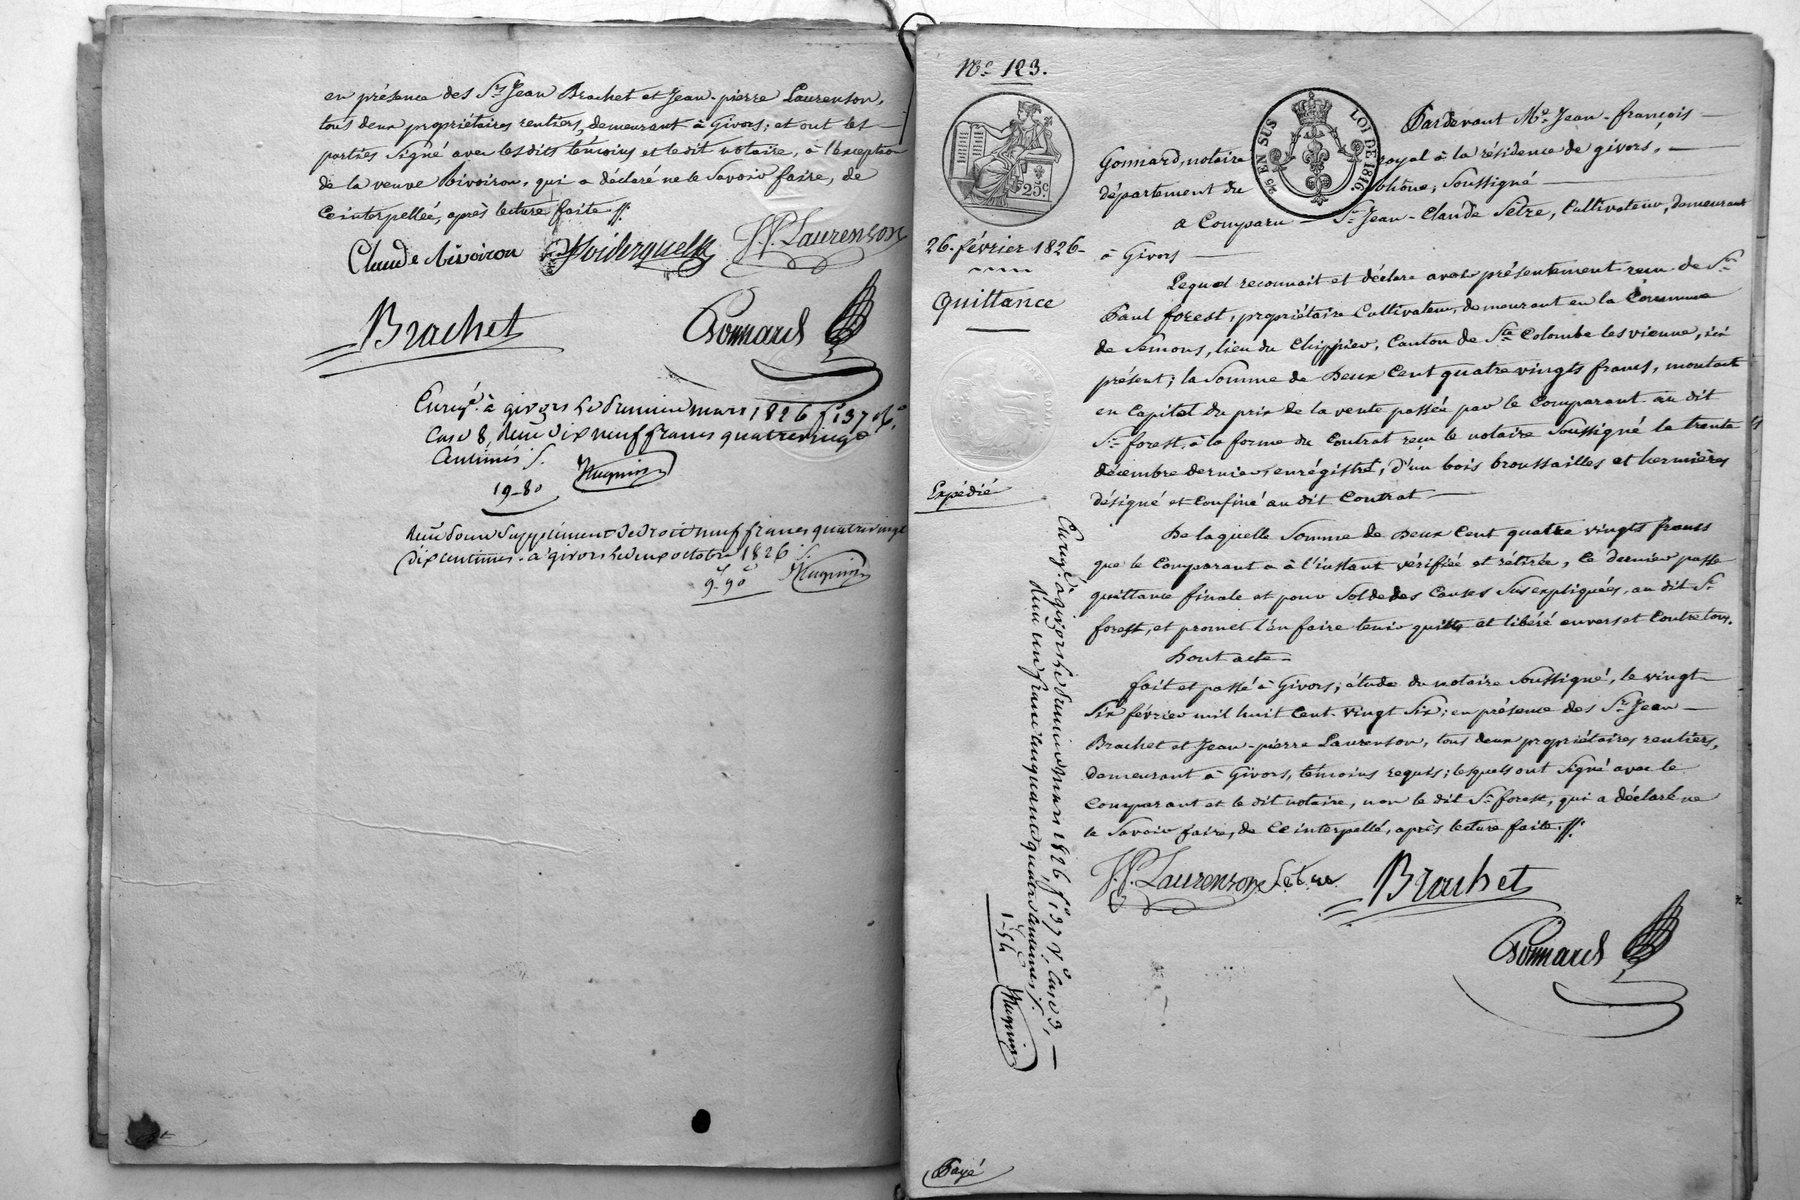 en présence des Srs Jean Brachet et Jean-pierre Laurenson,
tous deux propriétaires rentiers, demeurant à Givors; et ont les
parties signé avec les dits témoins et le dit notaire, à l'exception
de la veuve Rivoiron, qui a déclaré ne le savoir faire, de
ce interpellée, après lecture faite ./.
Claude Rivoiron J.P. Laurenson
Brachet Gonnard
Enregé. à givors le premier mars 1826 fo 137 Ro.
Case 8, reçu dix neuf francs quatrevingt
Centimes
19-80 Hugnin
reçu pour supplément de droit neuf francs quatrevingt
dix centimes. à givors le octobre 1826
9f 90c Hugnin
No. 123.
25c.
26 EN SUS LOI DE 1816.
26 février 1826
Quittance
Expédié
Pardevant Me. Jean-françois
Gonnard, notaire royal à la résidence de givors,
département du Rhône, soussigné
a Comparu Sr. Jean-Claude Setre, Cultivateur, demeurant
à Givors
Lequel reconnait et déclare avoir présentement reçu de Sr.
Paul forest, propriétaire Cultivateur, demeurant en la Commune
de Semons, lieu du Chippier, Canton de Ste Colombe les vienne, ici
présent; la Somme de Deux Cent quatre vingts francs, montant
en Capital du prix de la vente passée par le Comparant au dit
Sr. forest, à la forme du Contrat reçu le notaire soussigné le trente
décembre dernier, enrégistré, d'un bois broussailles et hermières
désigné et Confiné au dit Contrat
De laquelle Somme de Deux Cent quatre vingts francs
que le Comparant a à l'instant vérifiée et rétirée, ce dernier passe
quittance finale et pour Solde des Causes Susexpliquées, au dit Sr.
forest, et promet l'en faire tenir quitte et libéré envers et Contre tous.
Dont acte
fait et passé à Givors; étude du notaire soussigné, le vingt
six février mil huit Cent vingt six; en présence des Srs Jean
Brachet et Jean-pierre Laurenson, tous deux propriétaires rentiers,
demeurant à Givors, témoins requis; lesquels ont signé avec le
Comparant et le dit notaire, non le dit Sr. forest, qui a déclaré ne
le savoir faire, de ce interpellé, après lecture faite ./.
J.P. Laurenson Setre Brachet
Gonnard
Enregé. à givors le premier mars 1826, fo 137 Vo, Case 3,
reçu un franc cinquante quatre centimes
1f 54c Hugnin
Payé